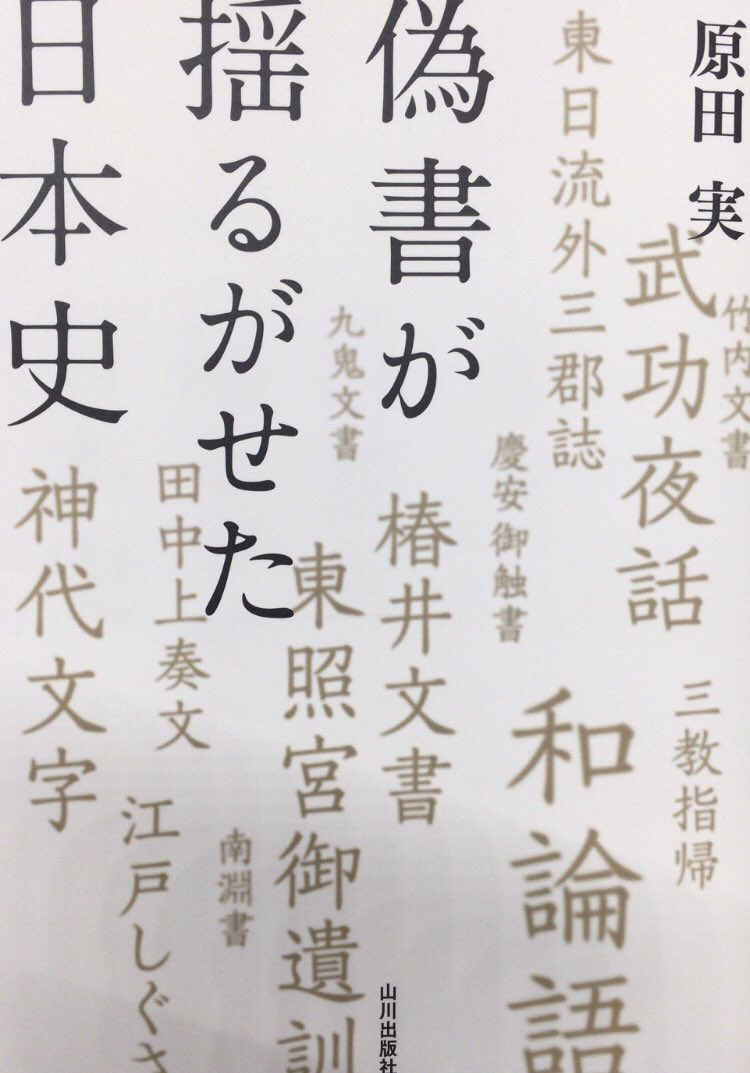 原田 実
偽書が
揺るがせた
日本史
竹内文書
武功夜話
三教指帰
東日流外三郡誌
慶安御触書
和論語
椿井文書
九鬼文書
東照宮御遺訓
南淵書
田中上奏文
江戸しぐさ
神代文字
山川出版社